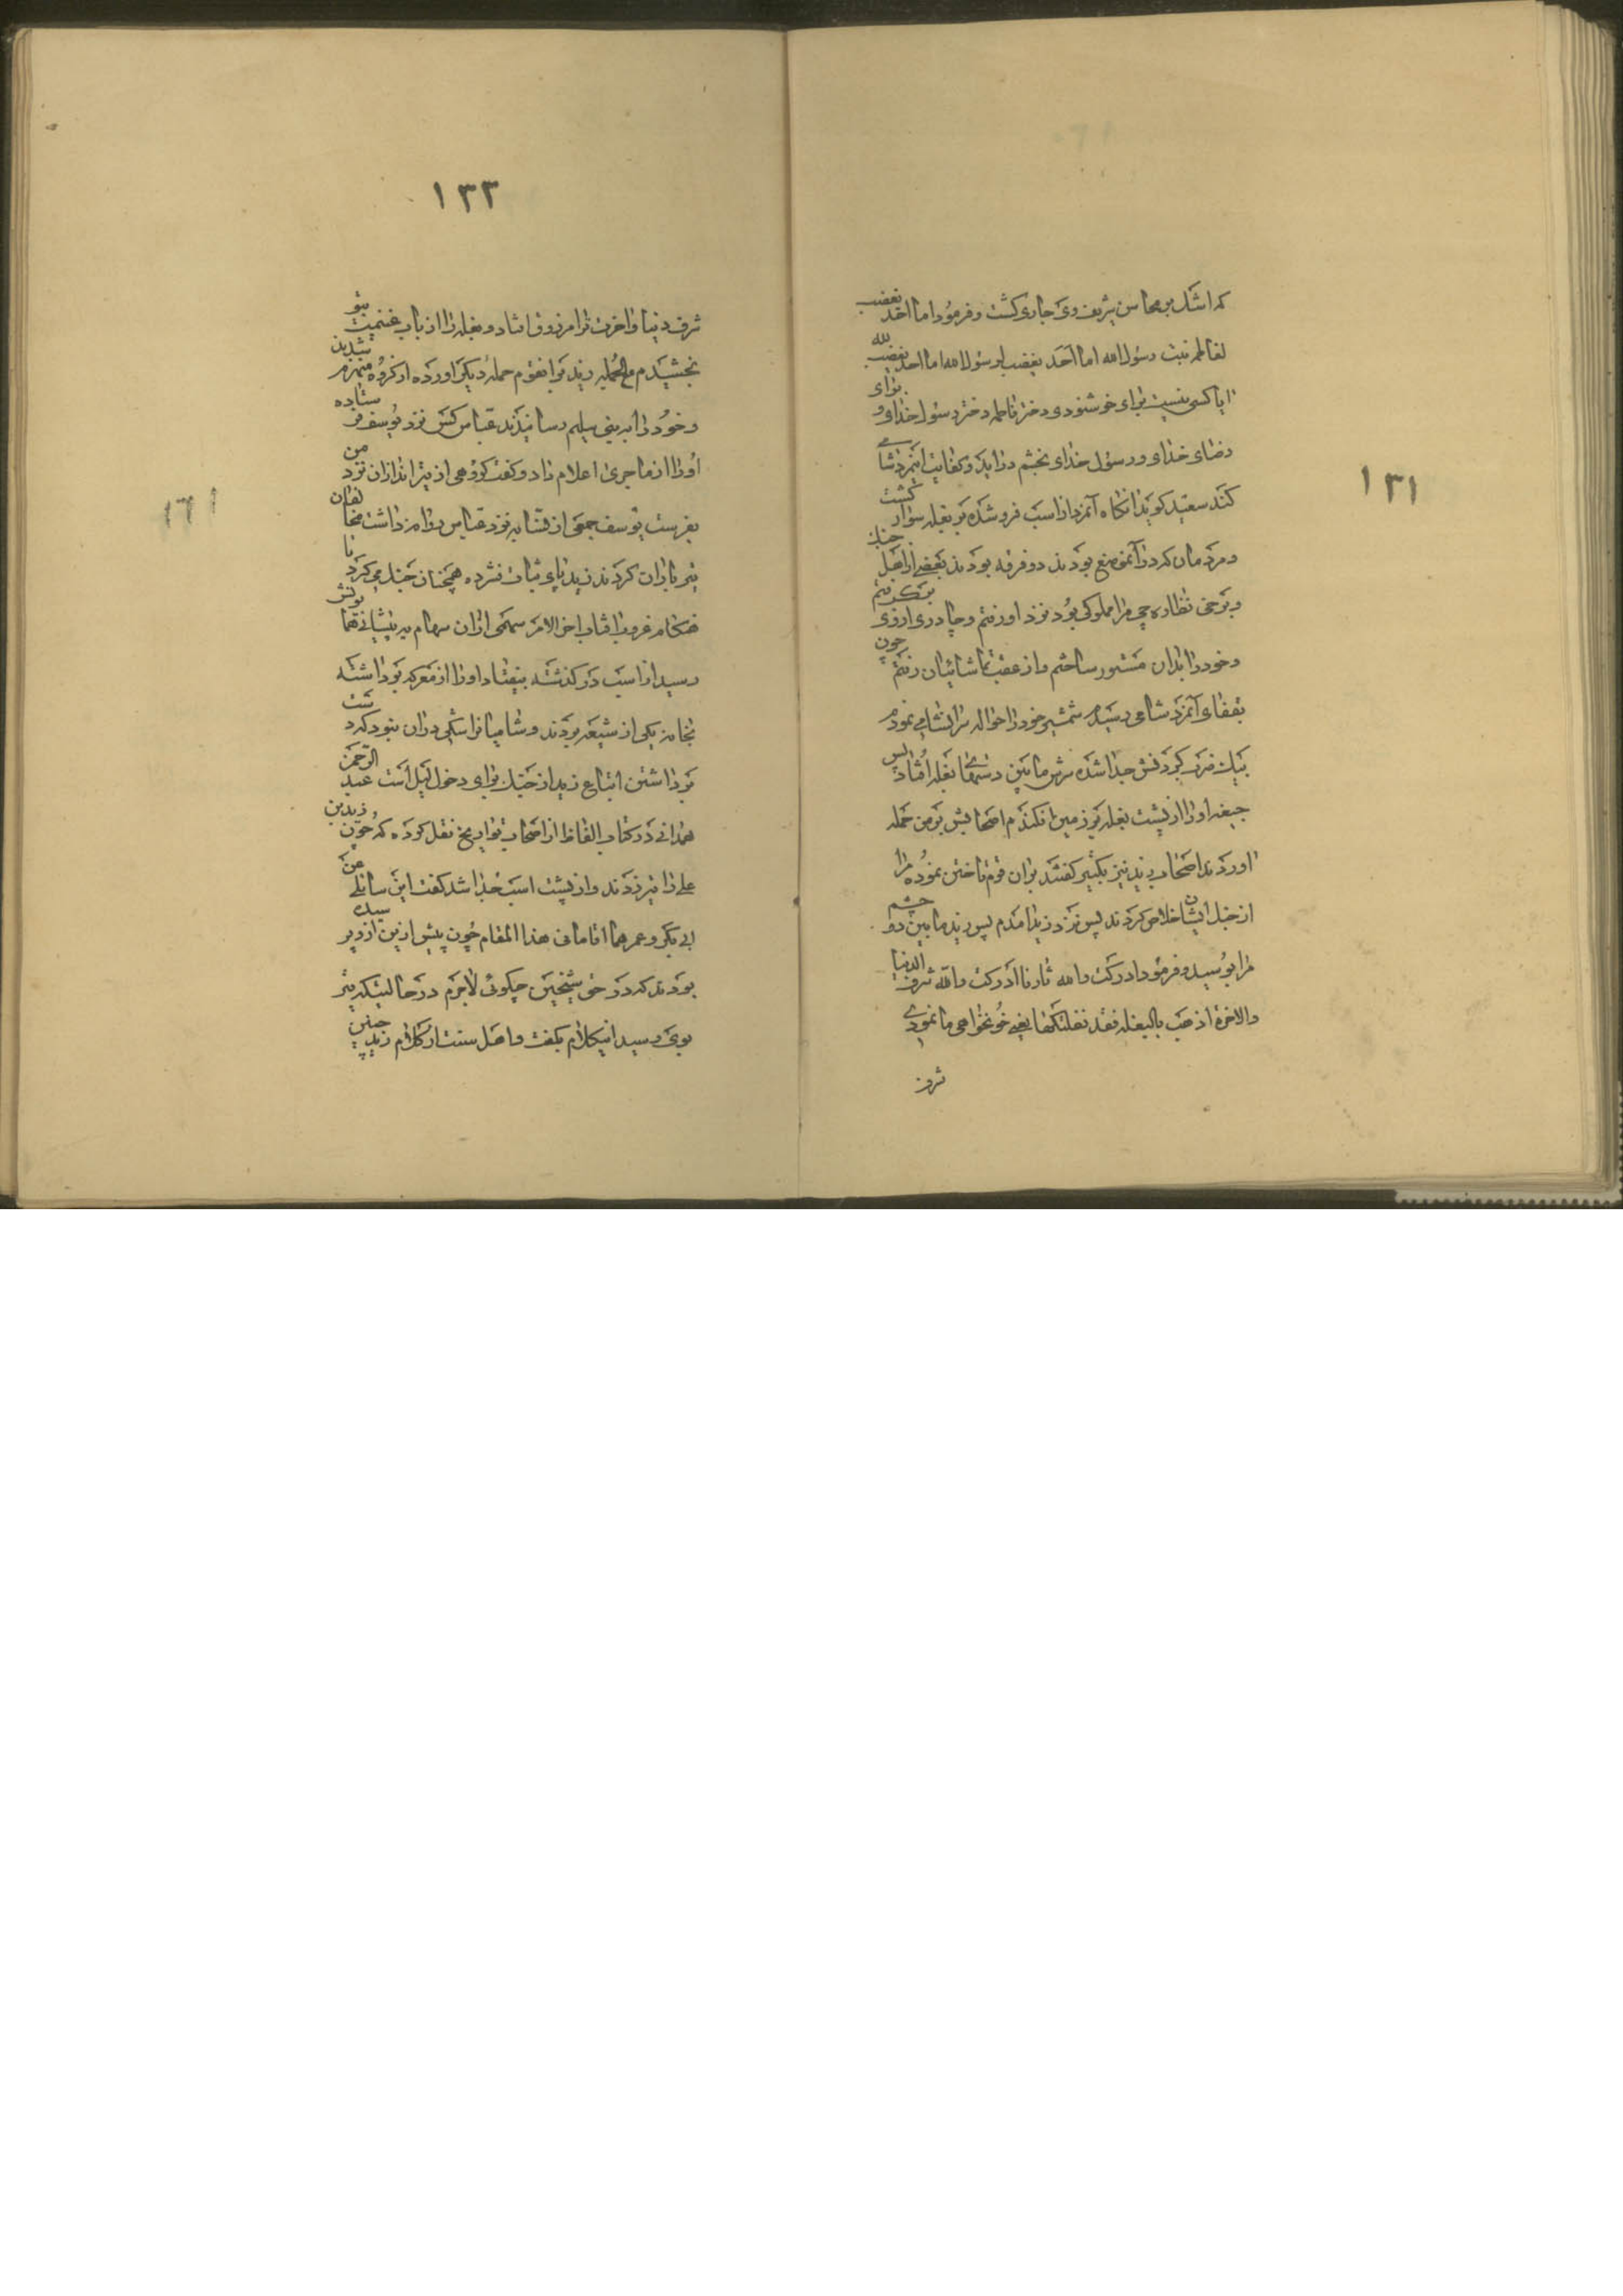 ۱۳۱
که اشک بر محاسن شریف وی جاری کشت و فرمود اما احد یغضب
لفاطمه بنت رسول الله اما احد یغضب لرسول الله اما احد یغضب لله
ایا کسی نیست برای خوشنودی دختر فاطمه دختر رسول خدای و برای
رضای خدای و رسول خدای بخشم دراید و کفایت اینمرد شامی
کند سعید کوید انکاه آنمرد از اسب فرو شده بر بغله سوار کشت
و مردمان که در آنموضع بودند دو فرقه بودند بعضی از اهل جنک
و برخی نظاره‌چی مرا مملوکی بود نزد او رفتم و چادری از وی برکرفتم
و خود را بدان مستور ساختم و از عقب تماشائیان رفتم چون
بقفای آنمرد شامی رسیدم شمشیر خود را حواله سر انشامی نمودم
بیک ضرب کردنش جدا شده سرش مابین دستهای بغله افتاد پس
جیفه او را از پشت بغله بر زمین افکندم اصحابش بر من حمله
اوردند اصحاب زید نیز تکبیر کفتند بران قوم تاختن نموده مرا
از جنک ایشان خلاص کردند پس نزد زید امدم پس زید مابین دو چشم
مرا بوسید و فرمود ادرکت والله ثارنا ادرکت والله شرف الدنیا
والاخرة اذهب بالبغله فقد نفلتکها یعنی خونخواهی ما نمودی
شرف
۱۳۲
شرف دنیا و اخرت ترا مرزوق افتاد و بغله را از باب غنیمت بتو
بخشیدم مع الجمله زید بر انقوم حمله دیکر اورده ان کروه منهزم شدند
و خود را به بنی سلیم رسانیدند عباس کس نزد یوسف فرستاده
او را از ماجری اعلام داد و کفت کروهی از تیر اندازان نزد من
بفرست یوسف جمعی از قتانیه نزد عباس روانه داشت مخالفان
تیر باران کردند زید پای ثبات فشرده همچنان جنک میکرد تا
هنکام غروب افتاب اخر الامر سهمی ازان سهام به پیشانی همایونش
رسید از اسب در کذشته بیفتاد او را از معرکه برداشته
بخانه یکی از شیعه بردند و شامیانرا شکی دران نبود که دست
برداشتن اتباع زید از جنک برای دخول لیل است عبد الرحمن
همدانی در کتاب الفاظ از اصحاب تواریخ نقل کرده که چون زید بن
علی را تیر زدند و از پشت اسب جدا شد کفت این سائلی عن
ابی بکر و عمر هما اقامانی هذا المقام چون پیش ازین از وی پرسیده
بودند که در حق شیخین چکوئی لاجرم در حالیتکه تیر
بوی رسید اینکلام بکفت و اهل سنت از کلام زید چنین